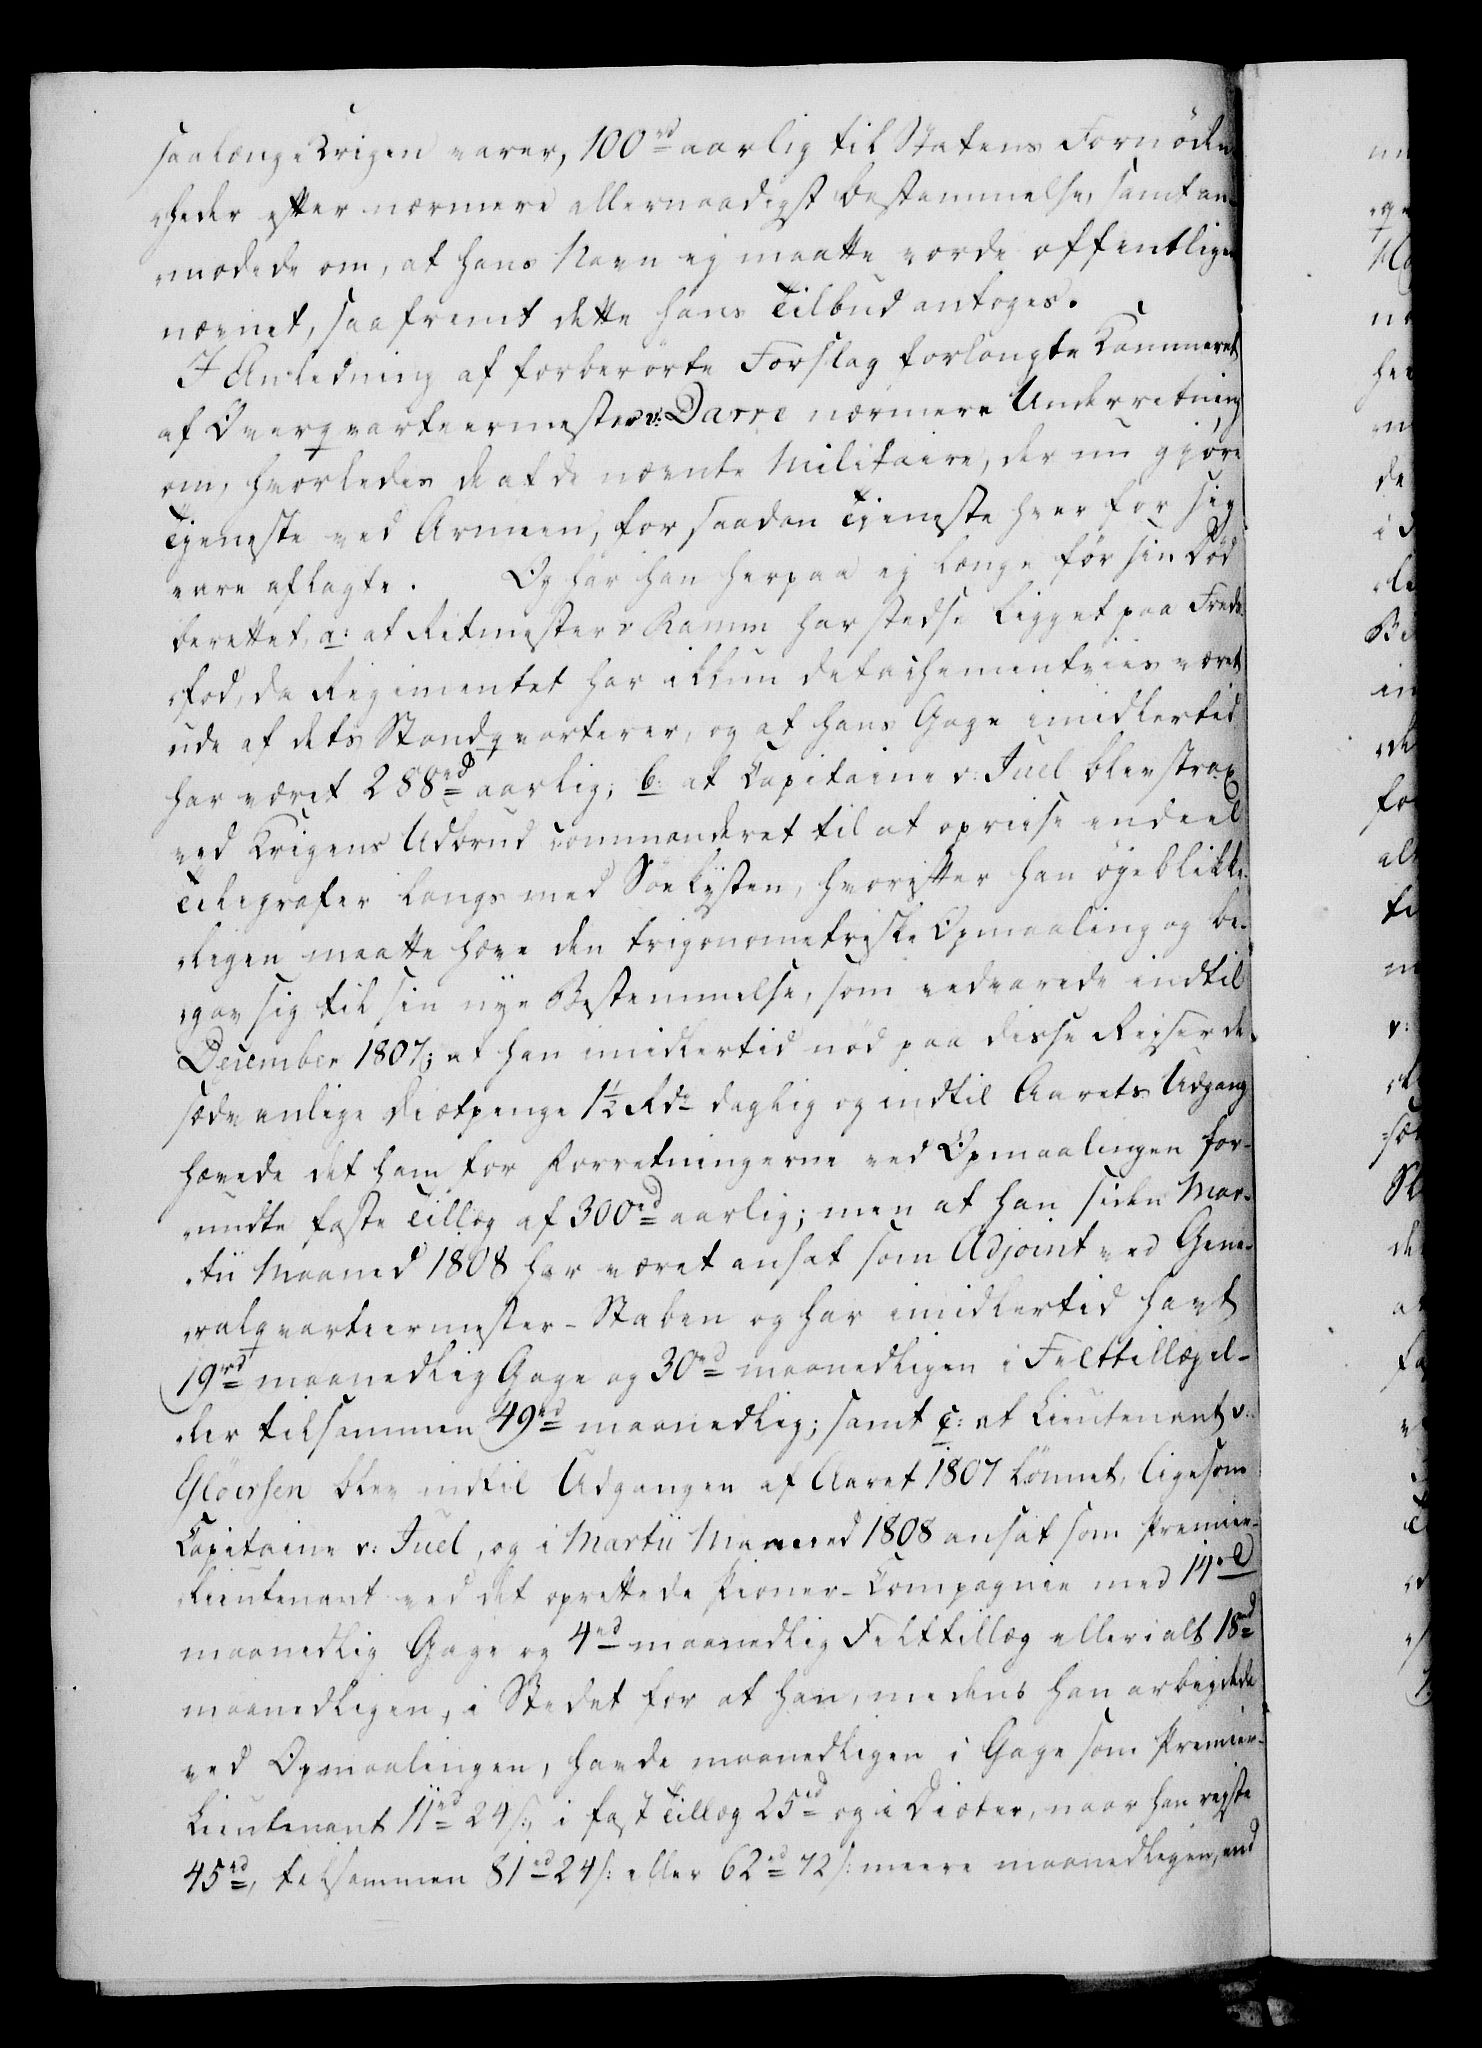 saalænge Krigen varer, 100 rd aarlig til Statens Fornöden
heder efter nærmere allernaadigst bestemmelse, samt an-
modede om, at hans Navn ej maatte vorde offentligen
nævnet, saafremt dette hans Tilbud antoges.
I Anledning af forberörte Forslag forlangte Kammeret
af Overqvarteermester v: Darre nærmere Underretning
om, hvorledes de af de nævnte Militaire, der nu gjöre
Tjeneste ved Armeen, for saadan Tjeneste hver for sig
vare aflagte. Og har han herpaa ej længe för sin Död
berettet, a: at Ritmester v Ramm har stedse ligget paa Freds
fod, da Regimentet har ikkun detachementviis været
ude af dets Standqvarterer, og at hans Gage imidlertid
har været 288 rd aarlig; b: at Capitaine v: Juel blev strax
ved Krigens Udbrud commanderet til at opreise endeel
Telegrafer langs med Söekysten, hvorefter han öyeblikke-
ligen maatte hæve den trigonometriske Opmaaling og be-
gav sig til sin nye Bestemmelse, som vedvarede indtil
December 1807; at han imidlertid nöd paa disse Reiser de
sædvanlige Diætpenge 1½ Rdr daglig og indtil Aarets Udgang
hævede det ham for Forretningerne ved Opmaalingen for-
undte faste Tillæg af 300 rd aarlig; men at han siden Mar-
tii Maaned 1808 har været ansat som Adjoint ved Gene-
ralqvarteermester-Staben og har imidlertid havt
19 rd maanedlig Gage og 30 rd maanedligen i Felttillæg el-
ler tilsammen 49 rd maanedlig; samt c: at Lieutenant v:
Glöersen blev indtil Udgangen af Aaret 1807 lönnet, ligesom
Capitaine v: Juel, og i Martii Maaned 1808 ansat som Premier-
Lieutenant ved det oprettede Pioneer-Compagnie med 14 rd
maanedlig Gage og 4 rd maanedlig Felttillæg eller ialt 18 rd
maanedligen, i Stedet for at han, medens han arbejdede
ved Opmaalingen, havde maanedligen i Gage som Premier-
Lieutenant 11 rd 24 s:, i fast Tillæg 25 rd og i Diæter, naar han rejste
45 rd, tilsammen 81 rd 24 s: eller 62 rd 72 s: meere maanedligen, end